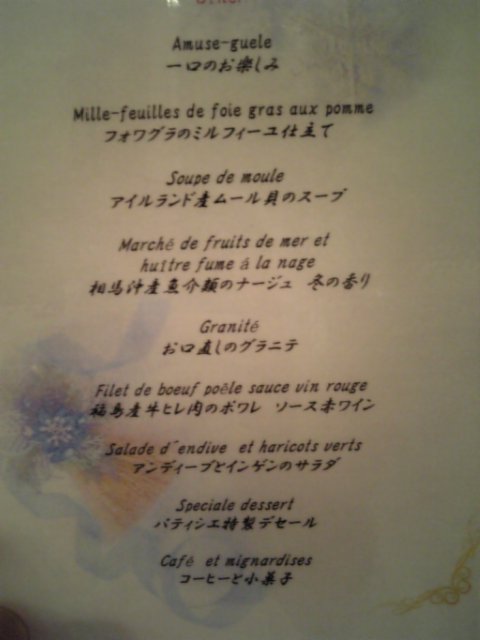 Amuse-guele
一口のお楽しみ
Mille-feuilles de foie gras aux pomme
フォワグラのミルフィーユ仕立て
Soupe de moule
アイルランド産ムール貝のスープ
Marché de fruits de mer et
huître fume á la nage
相馬沖産魚介類のナージュ 冬の香り
Granité
お口直しのグラニテ
Filet de boeuf poêle sauce vin rouge
福島産牛ヒレ肉のポワレ ソース赤ワイン
Salade d´endive et haricots verts
アンディーブとインゲンのサラダ
Speciale dessert
パティシエ特製デセール
Café et mignardises
コーヒーと小菓子